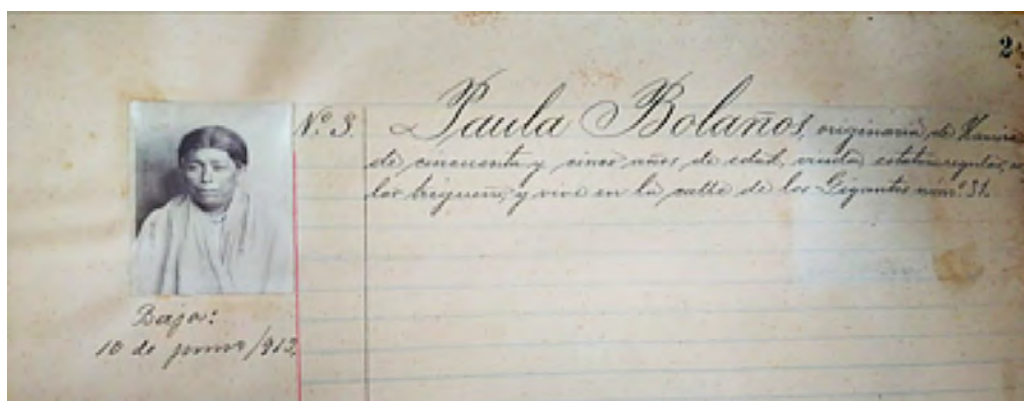 2
Nº 3. Paula Bolaños, originaria de
de cincuenta y cinco años de edad, viuda, estatura regular, co
lor trigueño, y vive en la calle de los Gigantes núm. 31.
Baja:
10 de junio /913